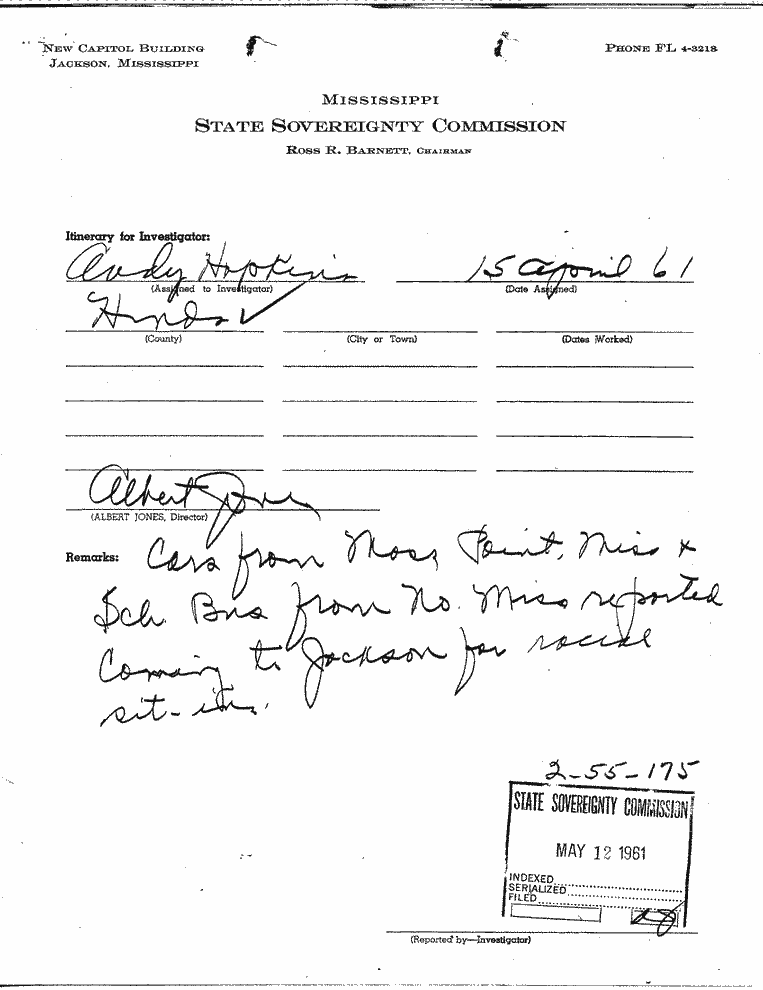 NEW CAPITOL BUILDING
JACKSON, MISSISSIPPI
PHONE FL 4-3218
MISSISSIPPI
STATE SOVEREIGNTY COMMISSION
ROSS R. BARNETT, CHAIRMAN
Itinerary for Investigator:
Andy Hopkins 15 April 61
(Assigned to Investigator) (Date Assigned)
Hinds
(County) (City or Town) (Dates Worked)
Albert Jones
(ALBERT JONES, Director)
Remarks: Cars from Moss Point, Miss +
Sch. Bus from No. Miss reported
Coming to Jackson for racial
sit-ins.
2-55-175
STATE SOVEREIGNTY COMMISSION
MAY 12 1961
INDEXED
SERIALIZED
FILED
(Reported by—Investigator)